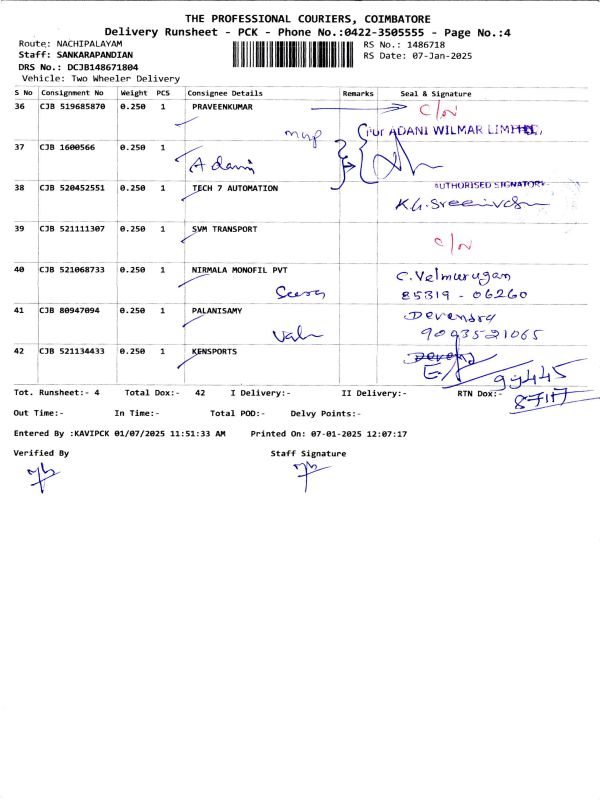 THE PROFESSIONAL COURIERS, COIMBATORE
Delivery Runsheet - PCK - Phone No.:0422-3505555 - Page No.:4
Route: NACHIPALAYAM RS No.: 1486718
Staff: SANKARAPANDIAN RS Date: 07-Jan-2025
DRS No.: DCJB148671804
Vehicle: Two Wheeler Delivery
S No Consignment No Weight PCS Consignee Details Remarks Seal & Signature
36 CJB 519685870 0.250 1 PRAVEENKUMAR C/N
For ADANI WILMAR LIMITED,
37 CJB 1600566 0.250 1
Adani
38 CJB 520452551 0.250 1 TECH 7 AUTOMATION AUTHORISED SIGNATORY
39 CJB 521111307 0.250 1 SVM TRANSPORT
C/N
40 CJB 521068733 0.250 1 NIRMALA MONOFIL PVT C. Velmurugan
85319 - 06260
41 CJB 80947094 0.250 1 PALANISAMY Devendra
9093521065
42 CJB 521134433 0.250 1 KENSPORTS
99445
Tot. Runsheet:- 4 Total Dox:- 42 I Delivery:- II Delivery:- RTN Dox:-
Out Time:- In Time:- Total POD:- Delvy Points:-
Entered By :KAVIPCK 01/07/2025 11:51:33 AM Printed On: 07-01-2025 12:07:17
Verified By Staff Signature